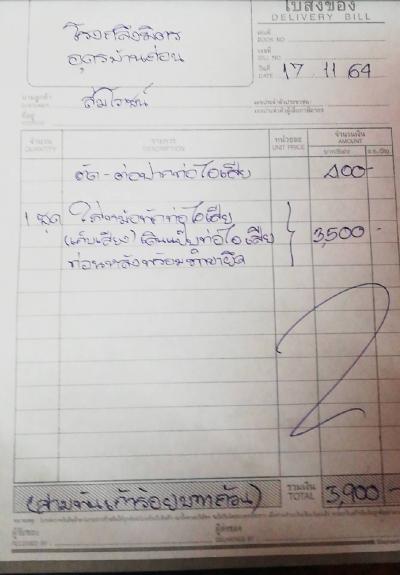 ใบส่งของ
DELIVERY BILL
เล่มที่
BOOK NO
เลขที่
BILL NO
วันที่
DATE 17 11 64
โรงกลึงธิดาร
อุดรบ้านผ่อน
นามลูกค้า
ที่อยู่
จำนวน รายการ หน่วยละ จำนวนเงิน
QUANTITY DESCRIPTION UNIT PRICE AMOUNT
ตัด-ต่อปากท่อไอเสีย 400-
1 ชุด ใส่หม้อพักท่อไอเสีย
(เก็บเสียง) เดินแป๊บท่อไอเสีย 3,500-
ท่อนหลังพร้อมขายึด
(สามพันเก้าร้อยบาทถ้วน) รวมเงิน
TOTAL 3,900-
ผู้รับของ ผู้ส่งของ
RECEIVED BY DELIVERED BY